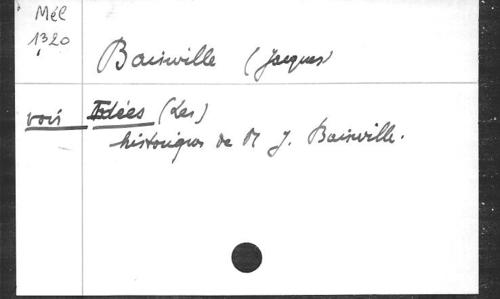 Mél
1320
Bainville (Jacques)
voir Idées (Les)
historiques de M J. Bainville.